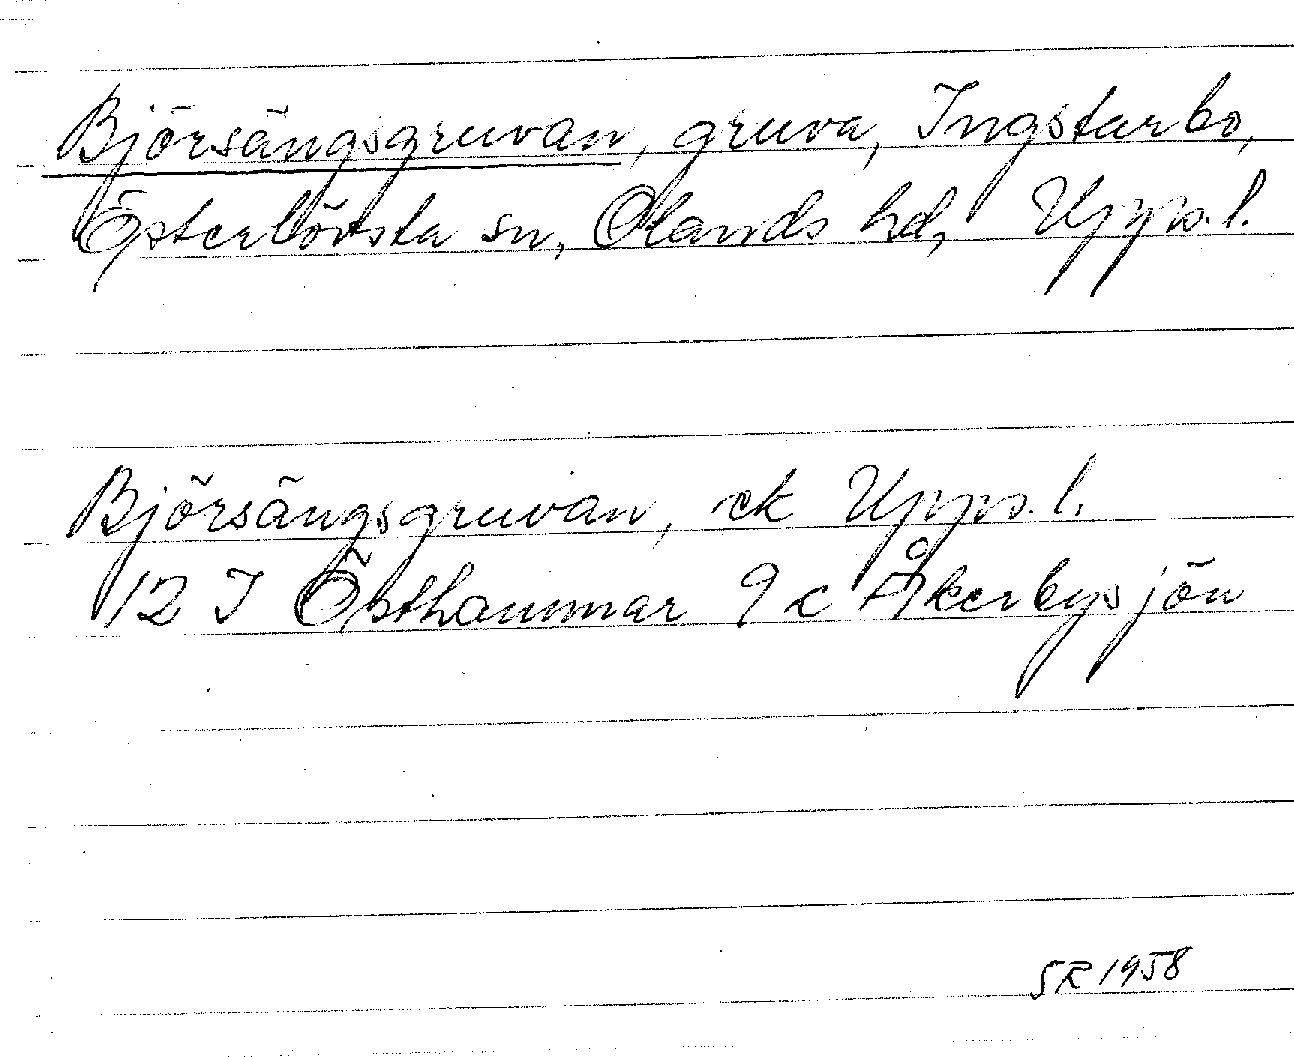 Björsängsgruvan, gruva, Ingstarbo,
Österlövsta sn, Olands hd, Upps. l.
Björsängsgruvan, ek Upps. l.
12 I Östhammar 9 c Åkerbysjön
SR 1958